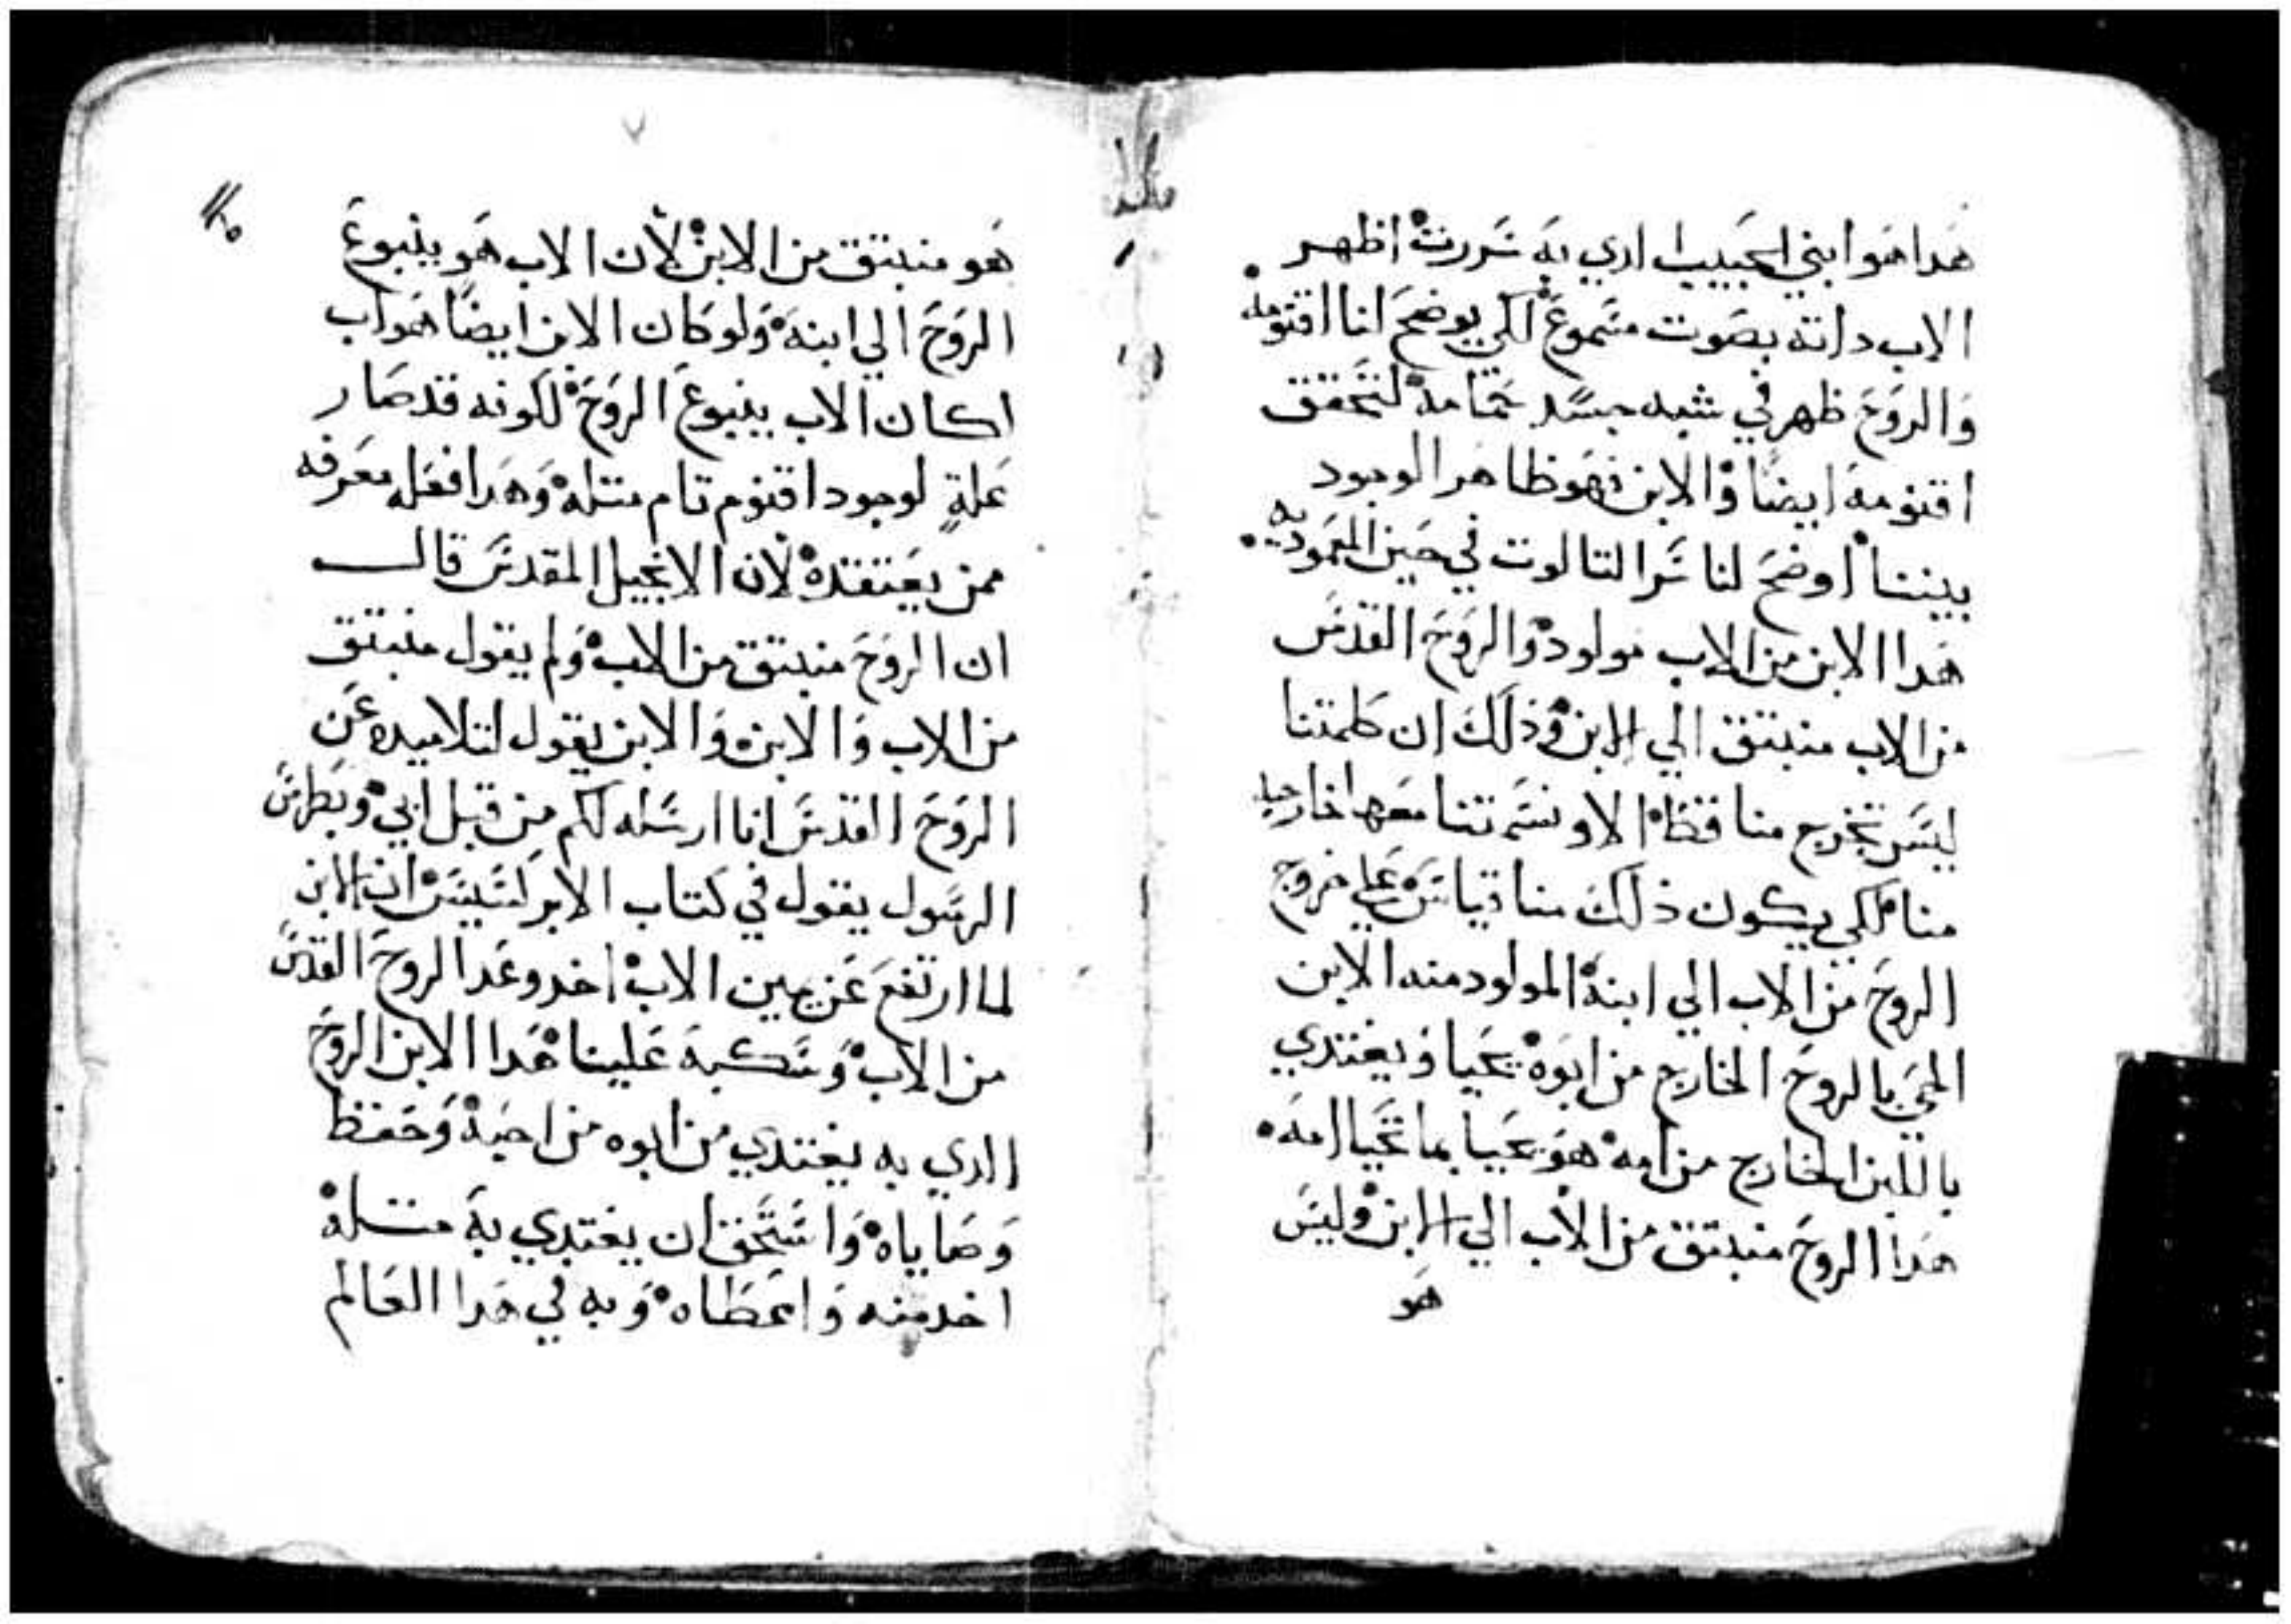 هدا هو ابني الحبيب الدي به سررت اظهر
الاب داته بصوت مسموع لكي يوضح لنا اقنومه
والروح ظهر في شبه جسد حمامه لنتحقق
اقنومه ايضا والابن فهو ظاهر الوجود
بيننا اوضح لنا سر التالوت في حين المعموديه
هدا الابن من الاب مولود والروح القدس
من الاب منبتق الي الابن وذلك ان كلمتنا
ليس تخرج منا فقط الا ونسمتنا معها خارجه
منا لكي يكون ذلك منا قياس علي خروج
الروح من الاب الي ابنه المولود منه الابن
الحي بالروح الخارج من ابوه يحيا ويغتدي
باللبن الخارج من امه هو يحيا بما تحيا امه
هدا الروح منبتق من الاب الي الابن وليس
هو
٧
هو منبتق من الابن لأن الاب هو ينبوع
الروح الي ابنه ولو كان الابن ايضا هو اب
اكان الاب ينبوع الروح لكونه قد صار
علة لوجود اقنوم تام متله وهدا فعله معرفه
ممن يعتقده لان الانجيل المقدس قال
ان الروح منبتق من الاب ولم يقول منبتق
من الاب والابن والابن يقول لتلاميده عن
الروح القدس انا ارسله لكم من قبل ابي وبطرس
الرسول يقول في كتاب الابركسيس ان الابن
لما ارتفع عن يمين الاب اخد وعد الروح القدس
من الاب وسكبه علينا هدا الابن الروح
الدي به يغتدي من ابوه من احبه وحفظ
وصاياه واستحق ان يغتدي به متله
اخد منه واعطاه وبه في هدا العالم